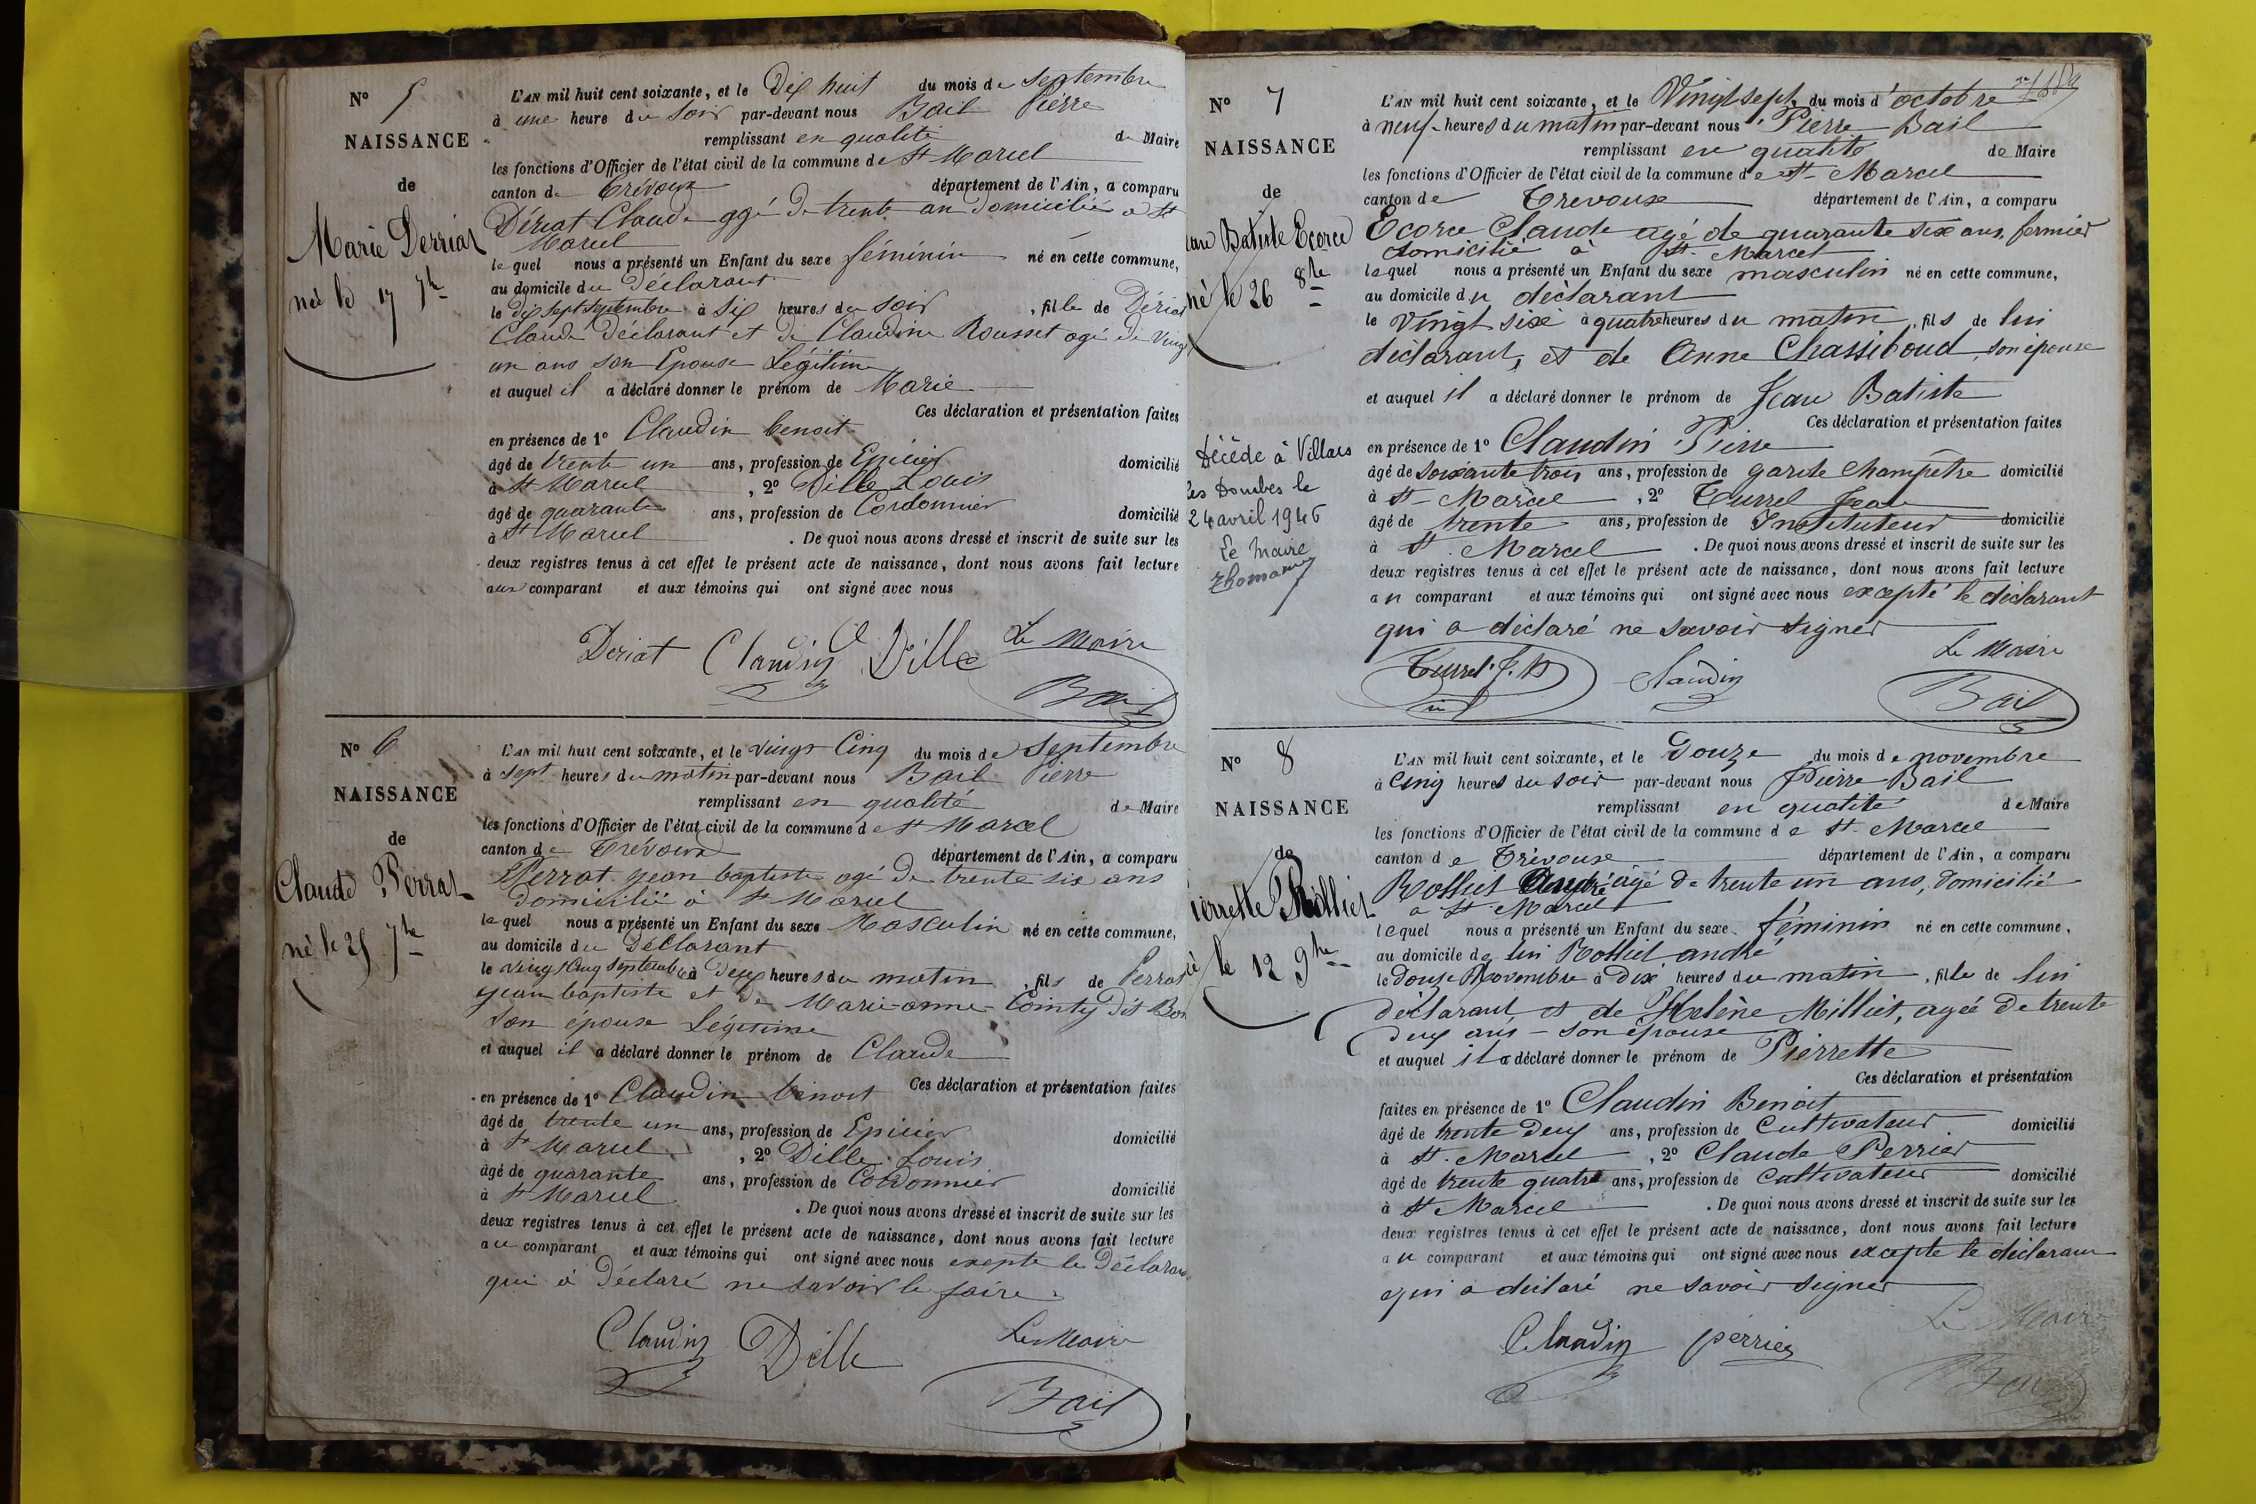 N° 5
NAISSANCE
de
Marie Derriat
née le 17 7bre
L'AN mil huit cent soixante, et le Dix huit du mois de Septembre
à une heure du soir par-devant nous Bail Pierre
remplissant en qualité de Maire
les fonctions d'Officier de l'état civil de la commune de St Marcel
canton de Trévoux département de l'Ain, a comparu
Dériat Claude agé de trente an domicilié a St
Marcel
lequel nous a présenté un Enfant du sexe féminin né en cette commune,
au domicile du déclarant
le dix sept septembre à six heures du soir, fille de Dériat
Claude déclarant et de Claudine Rousset agé de vingt
un ans son Epouse Légitime
et auquel il a déclaré donner le prénom de Marie
Ces déclaration et présentation faites
en présence de 1° Claudin benoit
âgé de trente un ans, profession de Epicier domicilié
à St Marcel, 2° Dille Louis
âgé de quarante ans, profession de Cordonnier domicilié
à St Marcel. De quoi nous avons dressé et inscrit de suite sur les
deux registres tenus à cet effet le présent acte de naissance, dont nous avons fait lecture
aux comparant et aux témoins qui ont signé avec nous
Le Maire
Deriat Claudin Dille
Bail
N° 6
NAISSANCE
de
Claude Perrat
né le 25 7bre
L'AN mil huit cent soixante, et le vingt Cinq du mois de Septembre
à sept heures du matin par-devant nous Bail Pierre
remplissant en qualité de Maire
les fonctions d'Officier de l'état civil de la commune de St Marcel
canton de Trévoux département de l'Ain, a comparu
Perrat jean baptiste agé de trente six ans
domicilié à St Marcel
lequel nous a présenté un Enfant du sexe Masculin né en cette commune,
au domicile du Déclarant
le vingt cinq septembre à deux heures du matin, fils de Perrat
jean baptiste et de Marie anne Cointy dit Bon
son épouse légitime
et auquel il a déclaré donner le prénom de Claude
Ces déclaration et présentation faites
en présence de 1° Claudin benoit
âgé de trente un ans, profession de Epicier domicilié
à St Marcel, 2° Dille Louis
âgé de quarante ans, profession de Cordonnier domicilié
à St Marcel. De quoi nous avons dressé et inscrit de suite sur les
deux registres tenus à cet effet le présent acte de naissance, dont nous avons fait lecture
au comparant et aux témoins qui ont signé avec nous exepte le Déclaran
qui à Déclaré ne savoir le faire.
Le Maire
Claudin Dille
Bail
N° 7
NAISSANCE
de
ean Batiste Ecorce
né le 26 8bre
Décédé à Villars
les Dombes le
24 avril 1946
Le Maire
L'AN mil huit cent soixante, et le Vingt sept du mois d'octobre
à neuf heures du matin par-devant nous Pierre Bail
remplissant en qualité de Maire
les fonctions d'Officier de l'état civil de la commune de St Marcel
canton de Trevoux département de l'Ain, a comparu
Ecorce Claude agé de quarante six ans, fermier
domicilié à St Marcel
lequel nous a présenté un Enfant du sexe masculin né en cette commune,
au domicile du déclarant
le vingt sixe à quatre heures du matin, fils de lui
déclarant, et de Anne Chassiboud, son épouse
et auquel il a déclaré donner le prénom de Jean Batiste
Ces déclaration et présentation faites
en présence de 1° Claudin Pierre
âgé de soixante trois ans, profession de garde Champêtre domicilié
à St Marcel, 2° Turrel Jean
âgé de trente ans, profession de Instituteur domicilié
à St Marcel. De quoi nous avons dressé et inscrit de suite sur les
deux registres tenus à cet effet le présent acte de naissance, dont nous avons fait lecture
au comparant et aux témoins qui ont signé avec nous excepté le déclarant
qui a déclaré ne savoir signer
Le Maire
Turrel J. B Claudin Bail
N° 8
NAISSANCE
de
ierrette Rolliet
le 12 9bre
L'AN mil huit cent soixante, et le Douze du mois de novembre
à cinq heures du soir par-devant nous Pierre Bail
remplissant en qualité de Maire
les fonctions d'Officier de l'état civil de la commune de St Marcel
canton de Trévoux département de l'Ain, a comparu
Rolliet André agé de trente un ans, domicilié
a St Marcel
lequel nous a présenté un Enfant du sexe féminin né en cette commune,
au domicile de lui Rolliet andré
le douze Novembre à dix heures du matin, fille de lui
déclarant et de Helène Milliet, agée de trente
deux ans son épouse
et auquel il a déclaré donner le prénom de Pierrette
Ces déclaration et présentation
faites en présence de 1° Claudin Benoit
âgé de trente deux ans, profession de Cultivateur domicilié
à St Marcel, 2° Claude Perrier
âgé de trente quatre ans, profession de Cultivateur domicilié
à St Marcel. De quoi nous avons dressé et inscrit de suite sur les
deux registres tenus à cet effet le présent acte de naissance, dont nous avons fait lecture
au comparant et aux témoins qui ont signé avec nous excepte le déclarant
qui a déclaré ne savoir signer
Le Maire
Claudin perrier
Bail